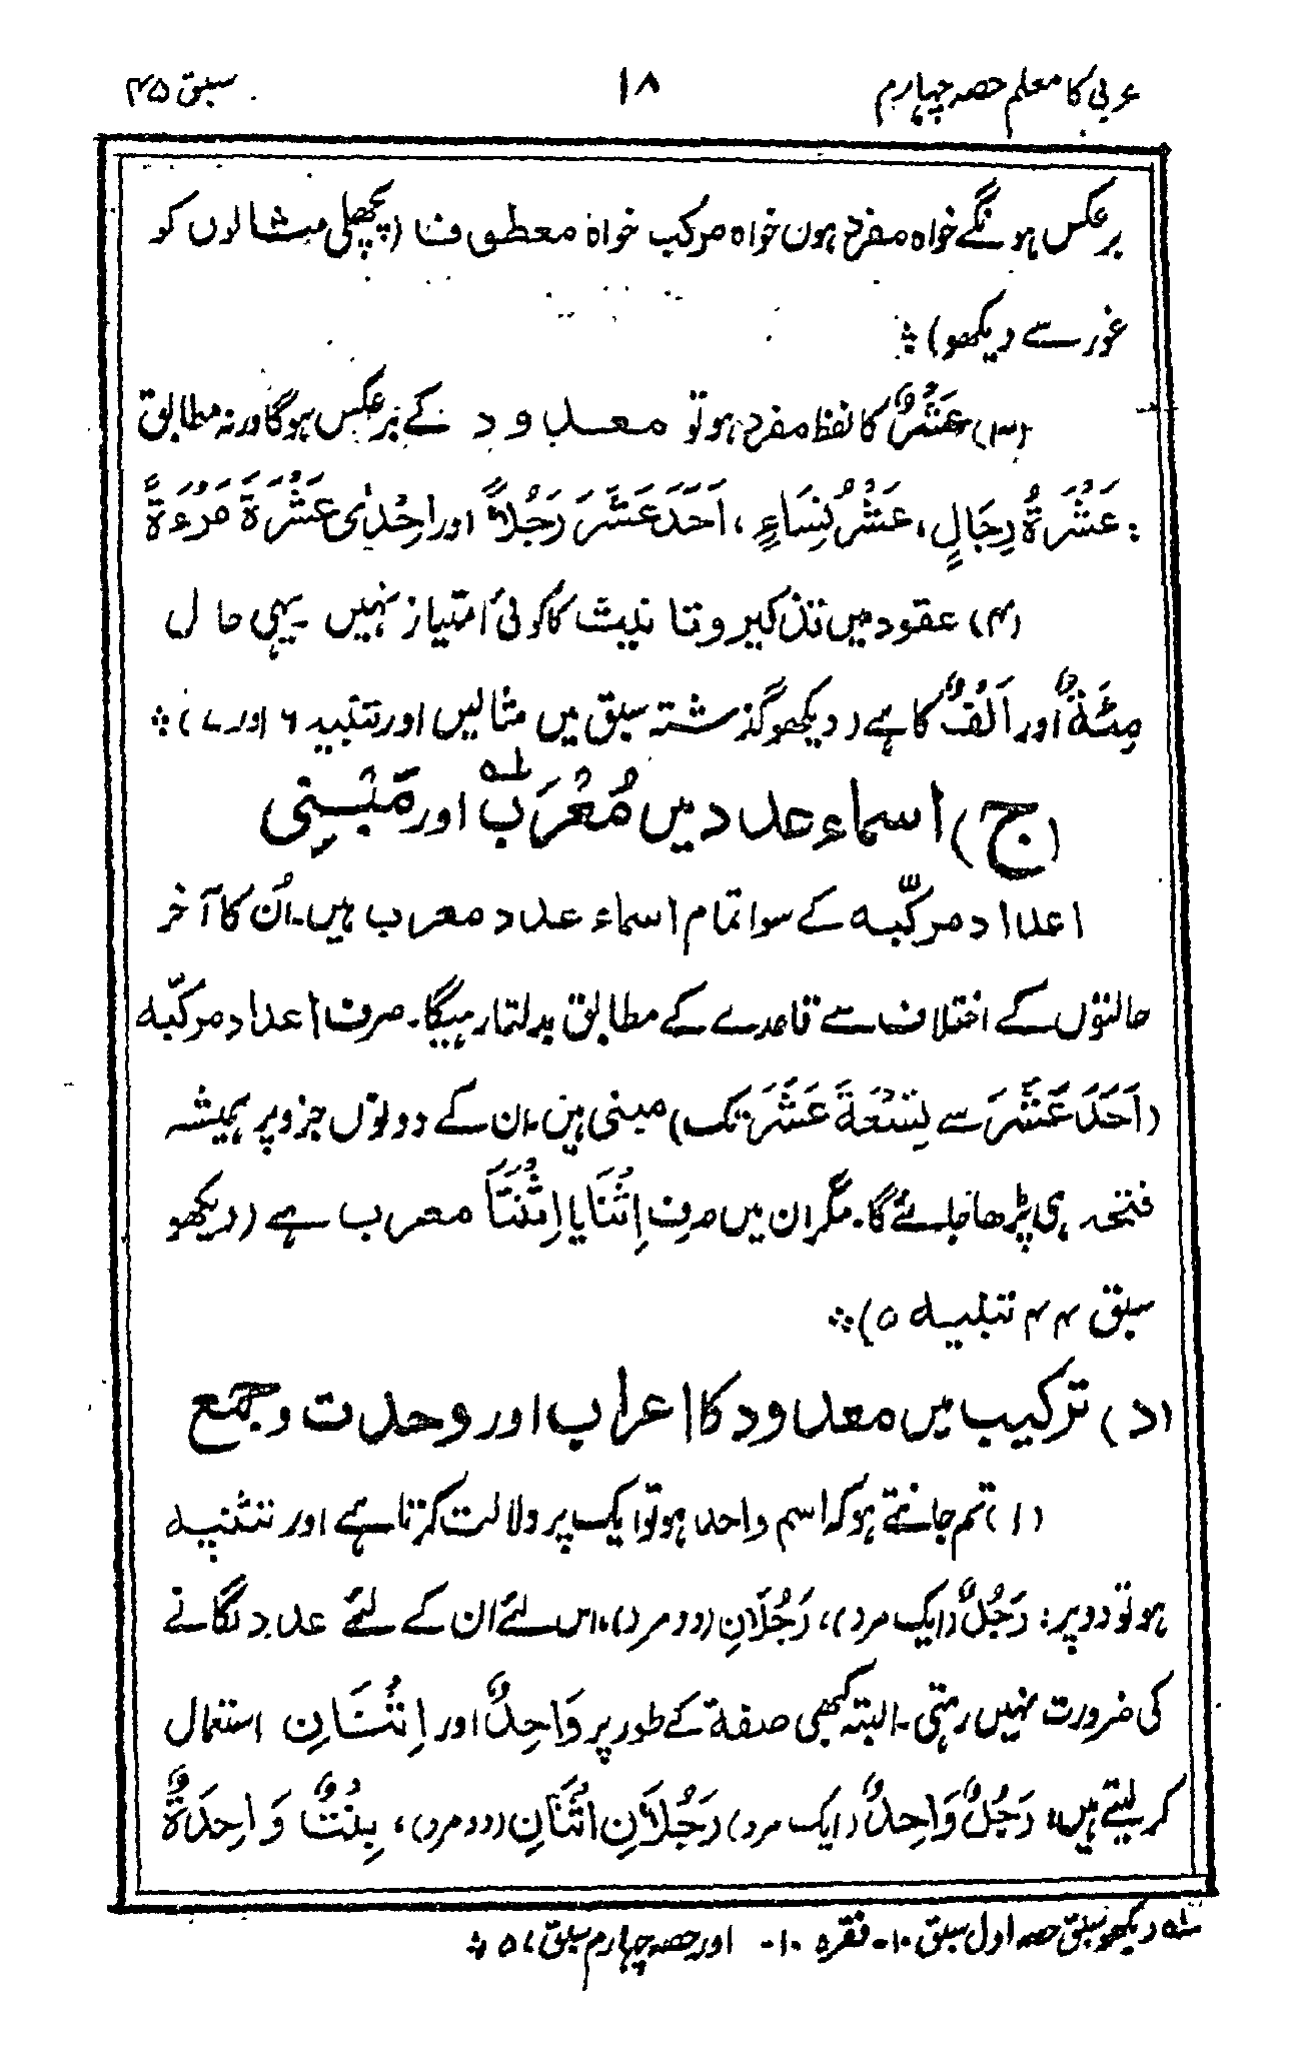 عربی کا معلم حصہ چہارم ۱۸ سبق ۴۵
برعکس ہونگے خواہ مفرد ہوں خواہ مرکب خواہ معطوف (پچھلی مثالوں کو
غور سے دیکھو)
(۳) عَشْرٌ کا لفظ مفرد ہو تو معدود کے برعکس ہوگا ورنہ مطابق
: عَشَرَةُ رِجَالٍ، عَشْرُ نِسَاءٍ، اَحَدَ عَشَرَ رَجُلًا اور اِحْدٰى عَشْرَةَ مَرْءَةً
(۴) عقود میں تذکیر و تانیث کا کوئی امتیاز نہیں۔ یہی حال
مِئَةٌ اور اَلْفٌ کا ہے (دیکھو گذشتہ سبق میں مثالیں اور تنبیہ ۶ اور ۷)
(ج) اسماء عدد میں مُعْرَب اور مَبْنِی
اعداد مرکّبہ کے سوا تمام اسماء عدد معرب ہیں۔ اُن کا آخر
حالتوں کے اختلاف سے قاعدے کے مطابق بدلتا رہیگا۔ صرف اعداد مرکّبہ
(اَحَدَ عَشَرَ سے تِسْعَةَ عَشَرَ تک) مبنی ہیں۔ ان کے دونوں جزو پر ہمیشہ
فتحہ ہی پڑھا جائے گا۔ مگر ان میں صرف اِثْنَا یا اِثْنَتَا معرب ہے (دیکھو
سبق ۴۴ تنبیہ ۵)
(د) ترکیب میں معدود کا اعراب اور وحدت و جمع
(۱) تم جانتے ہو کہ اسم واحد ہو تو ایک پر دلالت کرتا ہے اور تثنیہ
ہو تو دو پر: رَجُلٌ (ایک مرد)، رَجُلَانِ (دو مرد)، اس لئے ان کے لئے عدد لگانے
کی ضرورت نہیں رہتی۔ البتہ کبھی صفة کے طور پر وَاحِدٌ اور اِثْنَانِ استعمال
کر لیتے ہیں: رَجُلٌ وَاحِدٌ (ایک مرد) رَجُلَانِ اثْنَانِ (دو مرد)، بِنْتٌ وَاحِدَةٌ
لہ دیکھو سبق حصہ اول سبق ۱۰۔ فقرہ ۱۰۔ اور حصہ چہارم سبق ۵۷